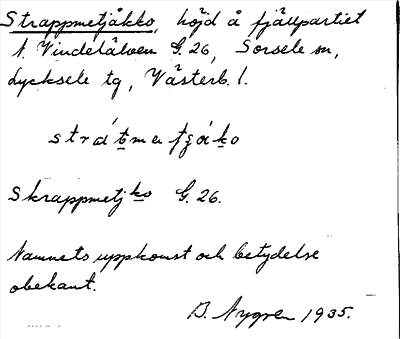 Strappmetjåkko, höjd å fjällpartiet
N. Vindelälven G. 26, Sorsele sn,
Lycksele tg, Västerb. l.
Skrappmetjko G. 26.
Namnets uppkomst och betydelse
obekant.
D. Nygren 1935.